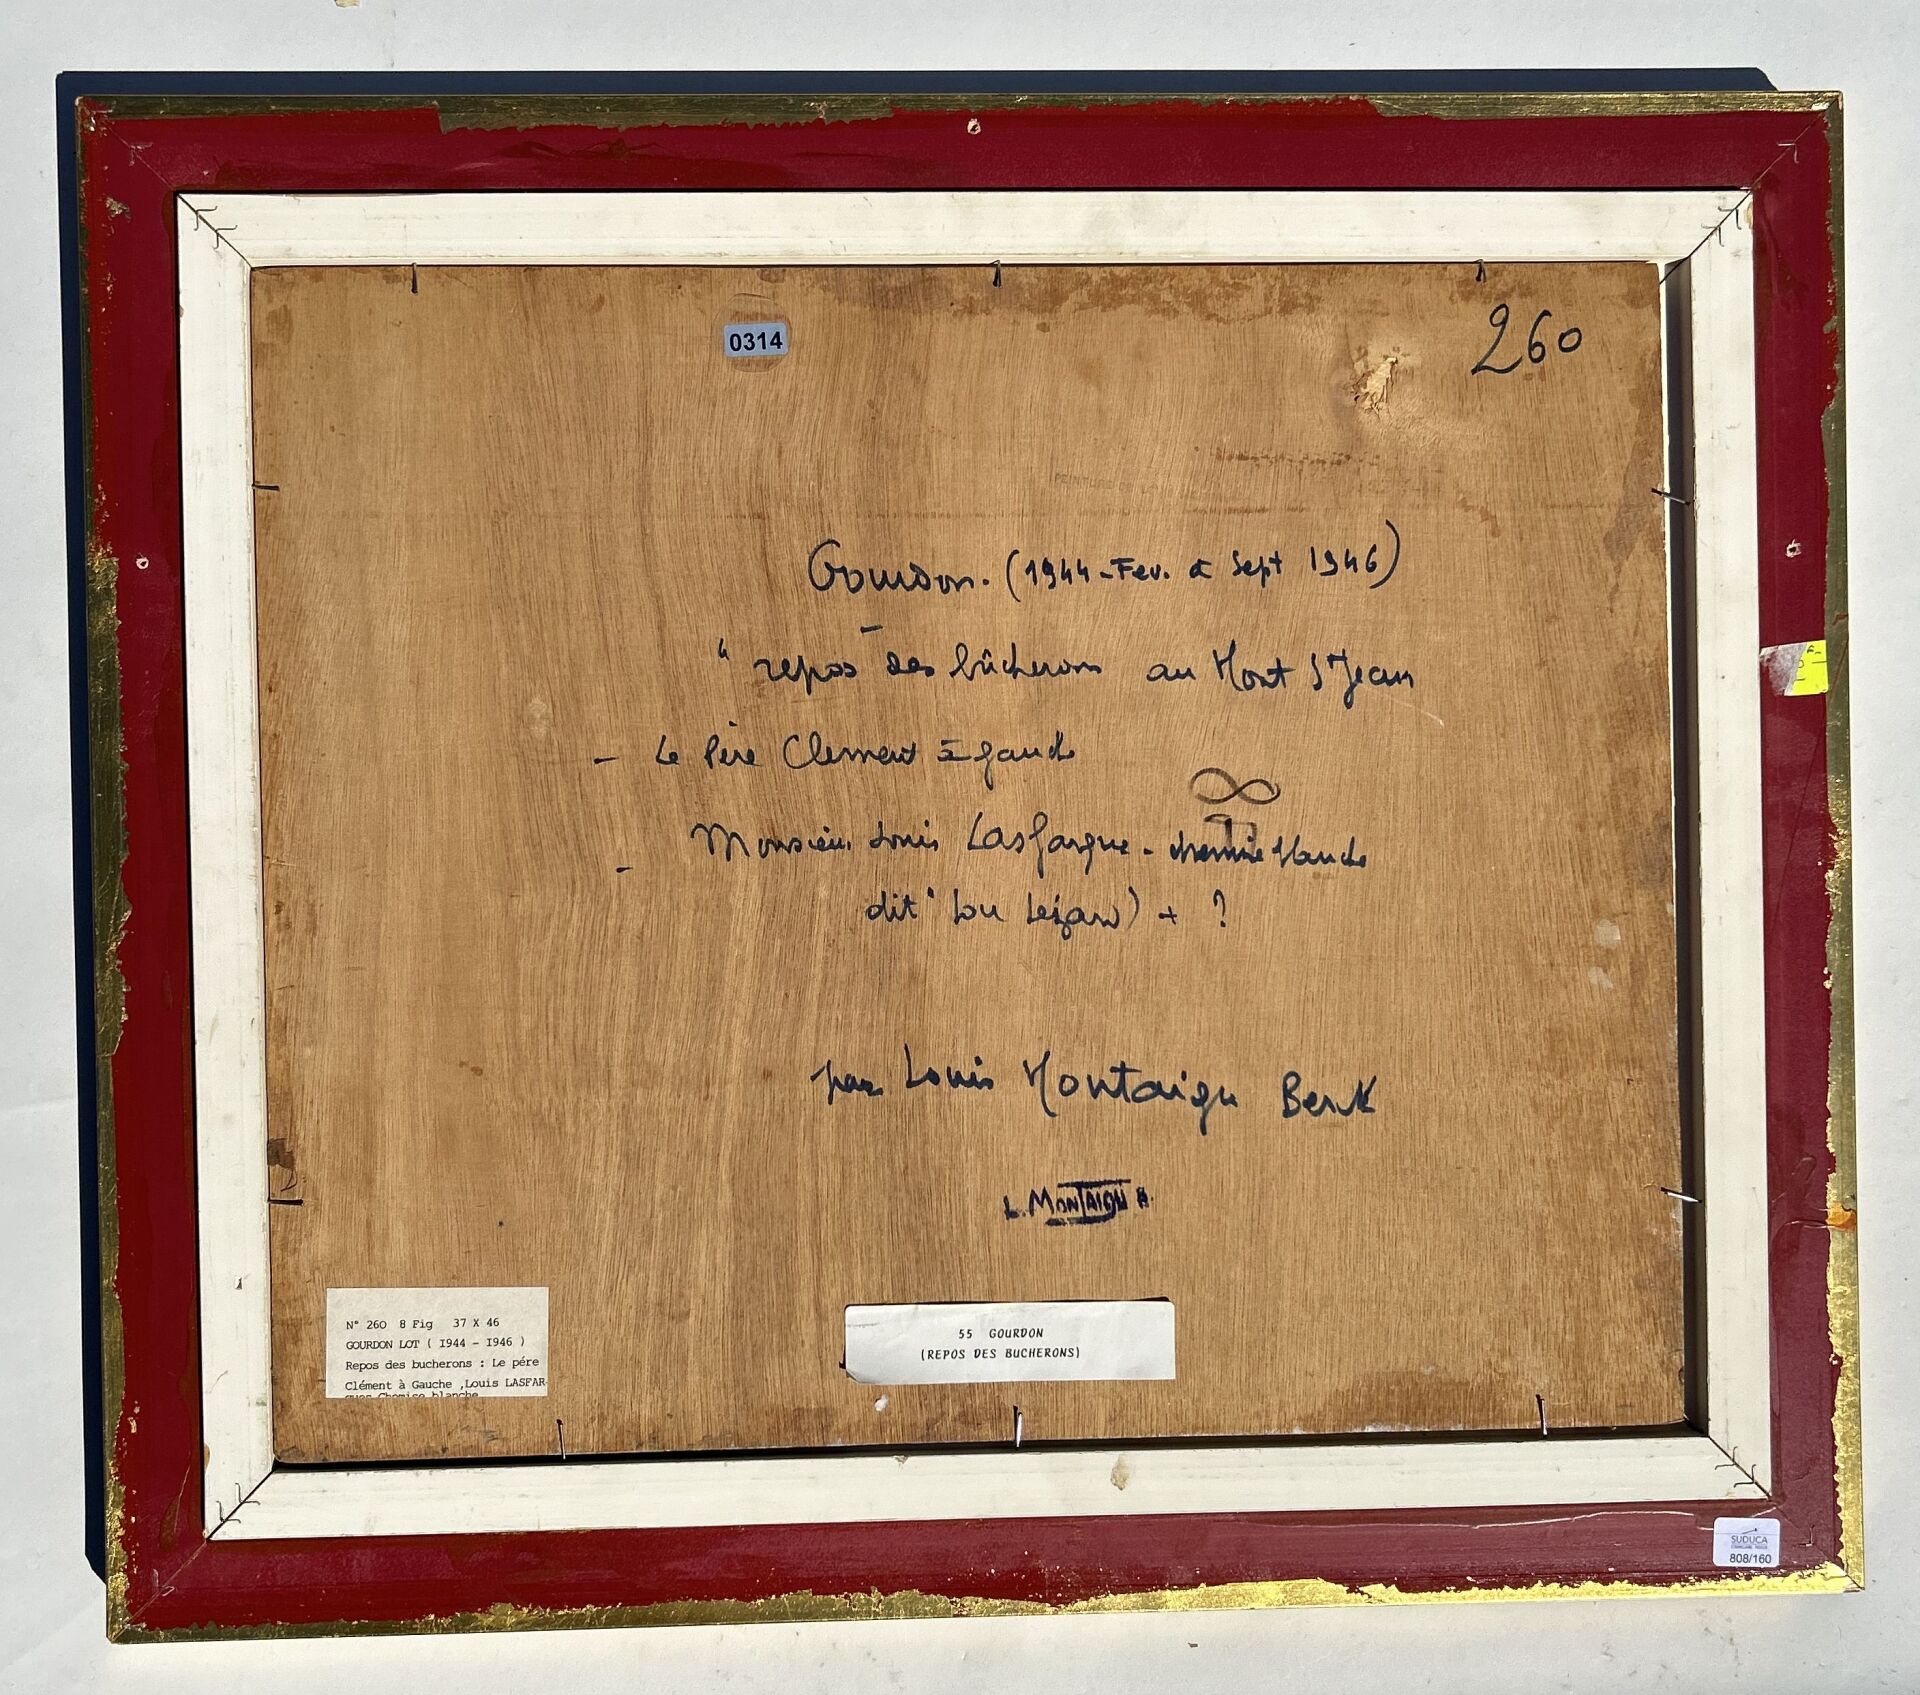 0314
260
PEINTURE
Gourdon. (1944 - Fev. à Sept 1946)
" repos des bûcherons au Mont St Jean
- Le Père Clement à gauche
- Monsieur Louis Lasfargue - chemise blanche
dit " Lou Lezan) + ?
par Louis Montaigu Berk
L. MONTAIGU B.
N° 260 8 Fig 37 X 46
GOURDON LOT ( I944 - I946 )
Repos des bucherons : Le pére
Clément à Gauche ,Louis LASFAR-
gues Chemise blanche
55 GOURDON
(REPOS DES BUCHERONS)
SUDUCA
808/160